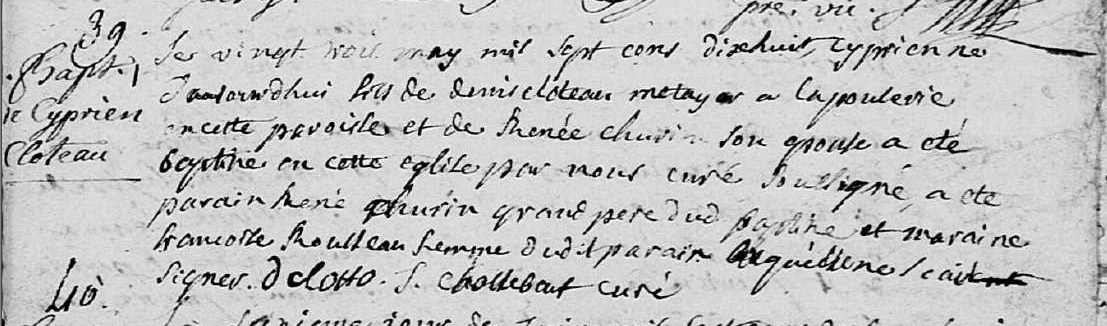 pre. vic.
39.
Bapt.
de Cyprien
Cloteau
Le vingt trois may mil sept cens dixhuit, Cyprien ne
daujourdhui fils de denis cloteau metayer a lapoulerie
en cette paroisse et de Renée churin son epouse a eté
baptisé en cette eglise par nous curé soussigné, a eté
parain René churin grand pere dud baptisé et maraine
francoise Rousseau femme dudit parain
signer. D clotto. J. curé
40.